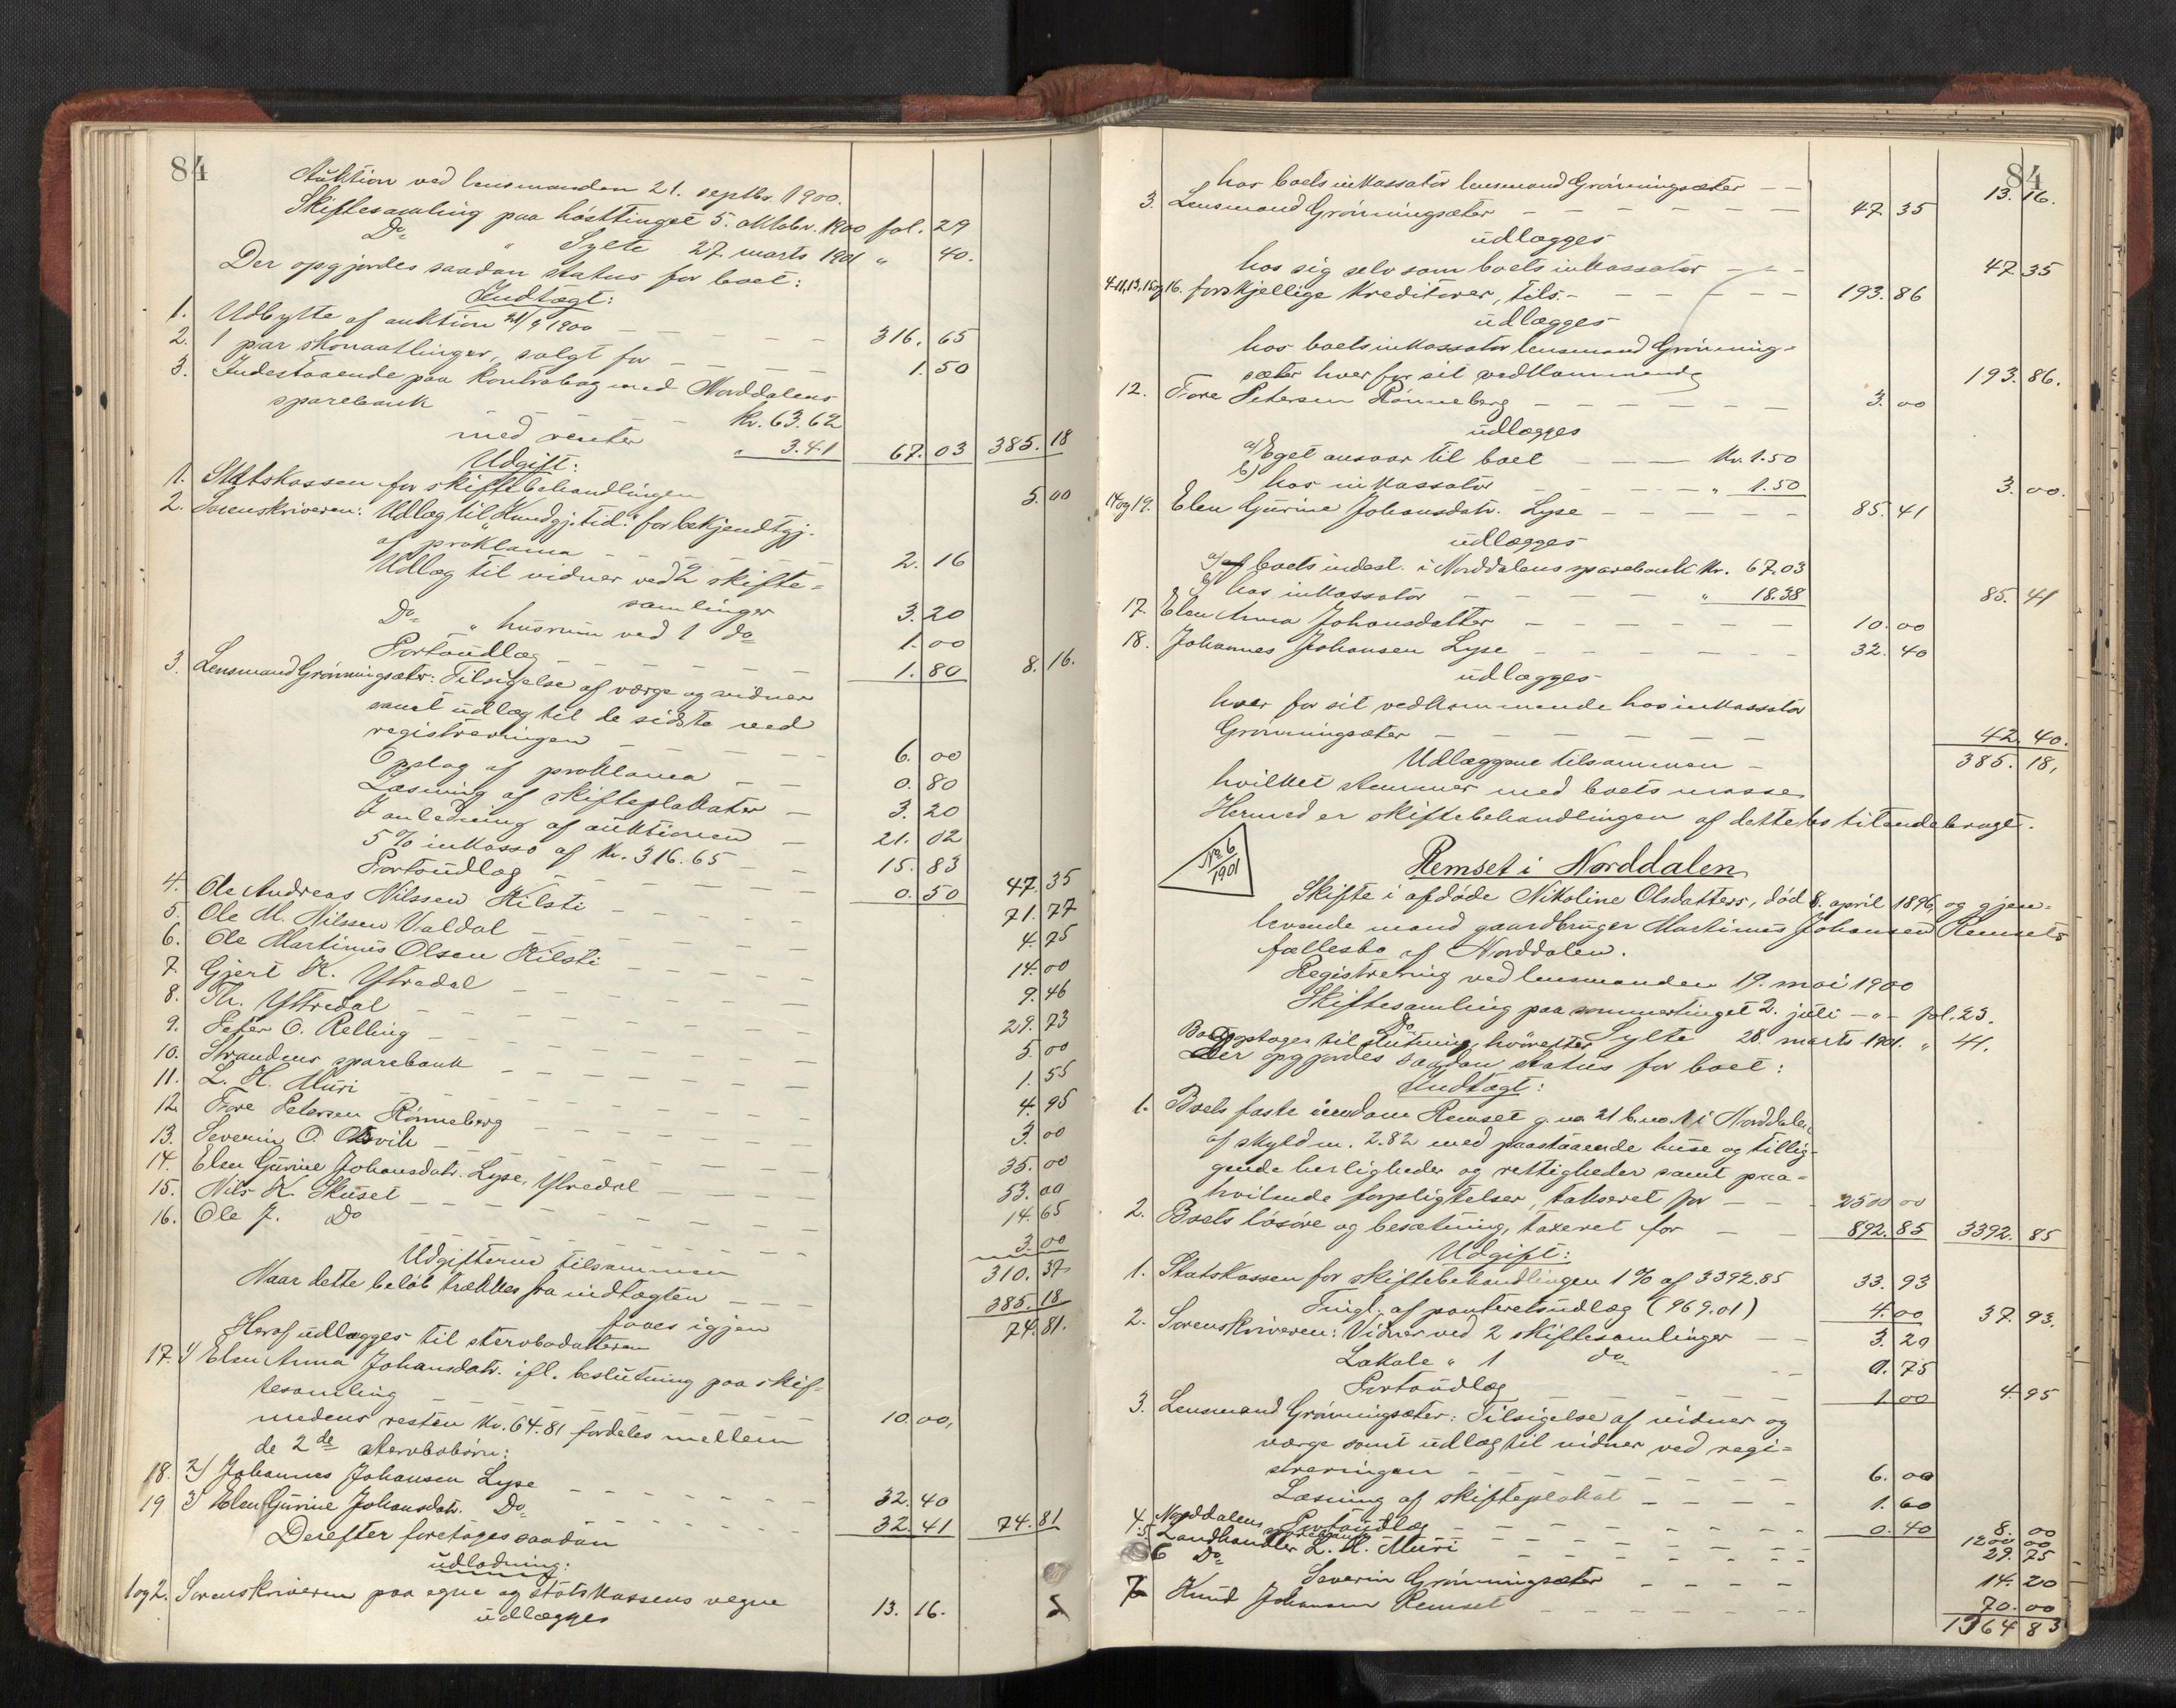 84
Auktion ved lensmanden 21. septbr. 1900.
Skiftesamling paa høsttinget 5. oktobr. 1900 fol. 29
Do " Sylte 27. marts 1901 " 40.
Der opgjordes saadan status for boet:
Indtægt:
1. Udbytte af auktion 21/9 1900 316.65
2. 1 par skonaatlinger, solgt for 1.50
3. Indestaaende paa kontrabog med Norddalens
sparebank kr. 63.62
med renter " 3.41 67.03 385.18
Udgift:
1. Statskassen for skiftebehandlingen 5.00
2. Sorenskriveren: Udlæg til "Kundgj. tid." for bekjendtgj.
af proklama 2.16
Udlæg til vidner ved 2 skifte-
samlinger 3.20
Do " husrum ved 1 do 1.00
Portoudlæg 1.80 8.16.
3. Lensmand Grønningsæter: Tilsigelse af værge og vidner
samt udlæg til de sidste ved
registreringen 6.00
Opslag af proklama 0.80
Læsning af skifteplakater 3.20
I anledning af auktionen 21.02
5% inkasso af kr. 316.65 15.83
Portoudlæg 0.50 47.35
4. Ole Andreas Nilssen Kilsti 71.77
5. Ole M. Nilssen Valdal 4.75
6. Ole Martinus Olsen Kilsti 14.00
7. Gjert K. Ytredal 9.46
8. Th. Yttredal 29.73
9. Peter O. Relling 5.00
10. Strandens sparebank 1.55
11. L. H. Muri 4.95
12. Tore Petersen Rønneberg 3.00
13. Severin O. 35.00
14. Elen Gurine Johansdatr. Lyse, Ytredal 53.00
15. Nils K. Skuset 14.65
16. Ole J. Do 3.00
Udgifterne tilsammen 310.37
Naar dette beløb trækkes fra indtægten 385.18
faaes igjen 74.81.
Heraf udlægges til stervbodatteren
17. 1) Elen Anna Johansdatr. ifl. beslutning paa skif-
tesamling 10.00,
medens resten kr. 64.81 fordeles mellem
de 2de stervbobørn:
18. 2) Johannes Johansen Lyse 32.40
19 3) Elen Gurine Johansdatr. Do 32.41 74.81
Derefter foretoges saadan
udlodning:
1 og 2. Sorenskriveren paa egne og statskassens vegne 13.16.
udlægges
84
hos boets inkassator lensmand Grønningsæter 13.16.
3. Lensmand Grønningsæter 47.35
udlægges
hos sig selv som boets inkassator 47.35
4-11, 13, 15 og 16. forskjellige kreditorer, tils. 193.86
udlægges
hos boets inkassator lensmand Grønning-
sæter hver for sit vedkommende 193.86.
12. Tore Petersen Rønneberg 3.00
udlægges
a) Eget ansvar til boet kr. 1.50
b) hos inkassator " 1.50 3.00.
14 og 19. Elen Gurine Johansdatr. Lyse 85.41
udlægges
a) af boets indest. i Norddalens sparebank kr. 67.03
b) hos inkassator " 18.38 85.41
17. Elen Anna Johansdatter 10.00
18. Johannes Johansen Lyse 32.40
udlægges
hver for sit vedkommende hos inkassator
Grønningsæter 42.40.
Udlæggene tilsammen 385.18,
hvilket stemmer med boets masse.
Hermed er skiftebehandlingen af dette bo tilendebragt.
No 6
1901
Remset i Norddalen
Skifte i afdøde Nikoline Olsdatters, død 8. april 1896, og gjen-
levende mand gaardbruger Martinus Johansen Remsets
fællesbo af Norddalen.
Registrering ved lensmanden 19. mai 1900
Skiftesamling paa sommertinget 2. juli " fol. 23.
Do Sylte 28. marts 1901. " 41.
Boet optoges til slutning, hvorefter
der opgjordes saadan status for boet:
Indtægt:
1. Boets faste eiendom Remset g.no. 21 b.no. 1 i Norddalen
af skyld m. 2.82 med paastaaende huse og tillig-
gende herligheder og rettigheder samt paa-
hvilende forpligtelser, takseret for 2500 00
2. Boets løsøre og besætning, taxeret for 892.85 3392.85
Udgift:
1. Statskassen for skiftebehandlingen 1% af 3392.85 33.93
Tingl. af panteretsudlæg (969.01) 4.00 37.93.
2. Sorenskriveren: Vidner ved 2 skiftesamlinger 3.20
Lokale " 1 do 0.75
Portoudlæg 1.00 4.95
3. Lensmand Grønningsæter: Tilsigelse af vidner og
værge samt udlæg til vidner ved regi-
streringen 6.00
Læsning af skifteplakat 1.60
Portoudlæg 0.40 8.00
4. Norddalens sparebank 1200 00
5. Landhandler L. H. Muri 29.75
6 Do Severin Grønningsæter 14.20
7 Knud Johansen Remset 70.00
1364 83